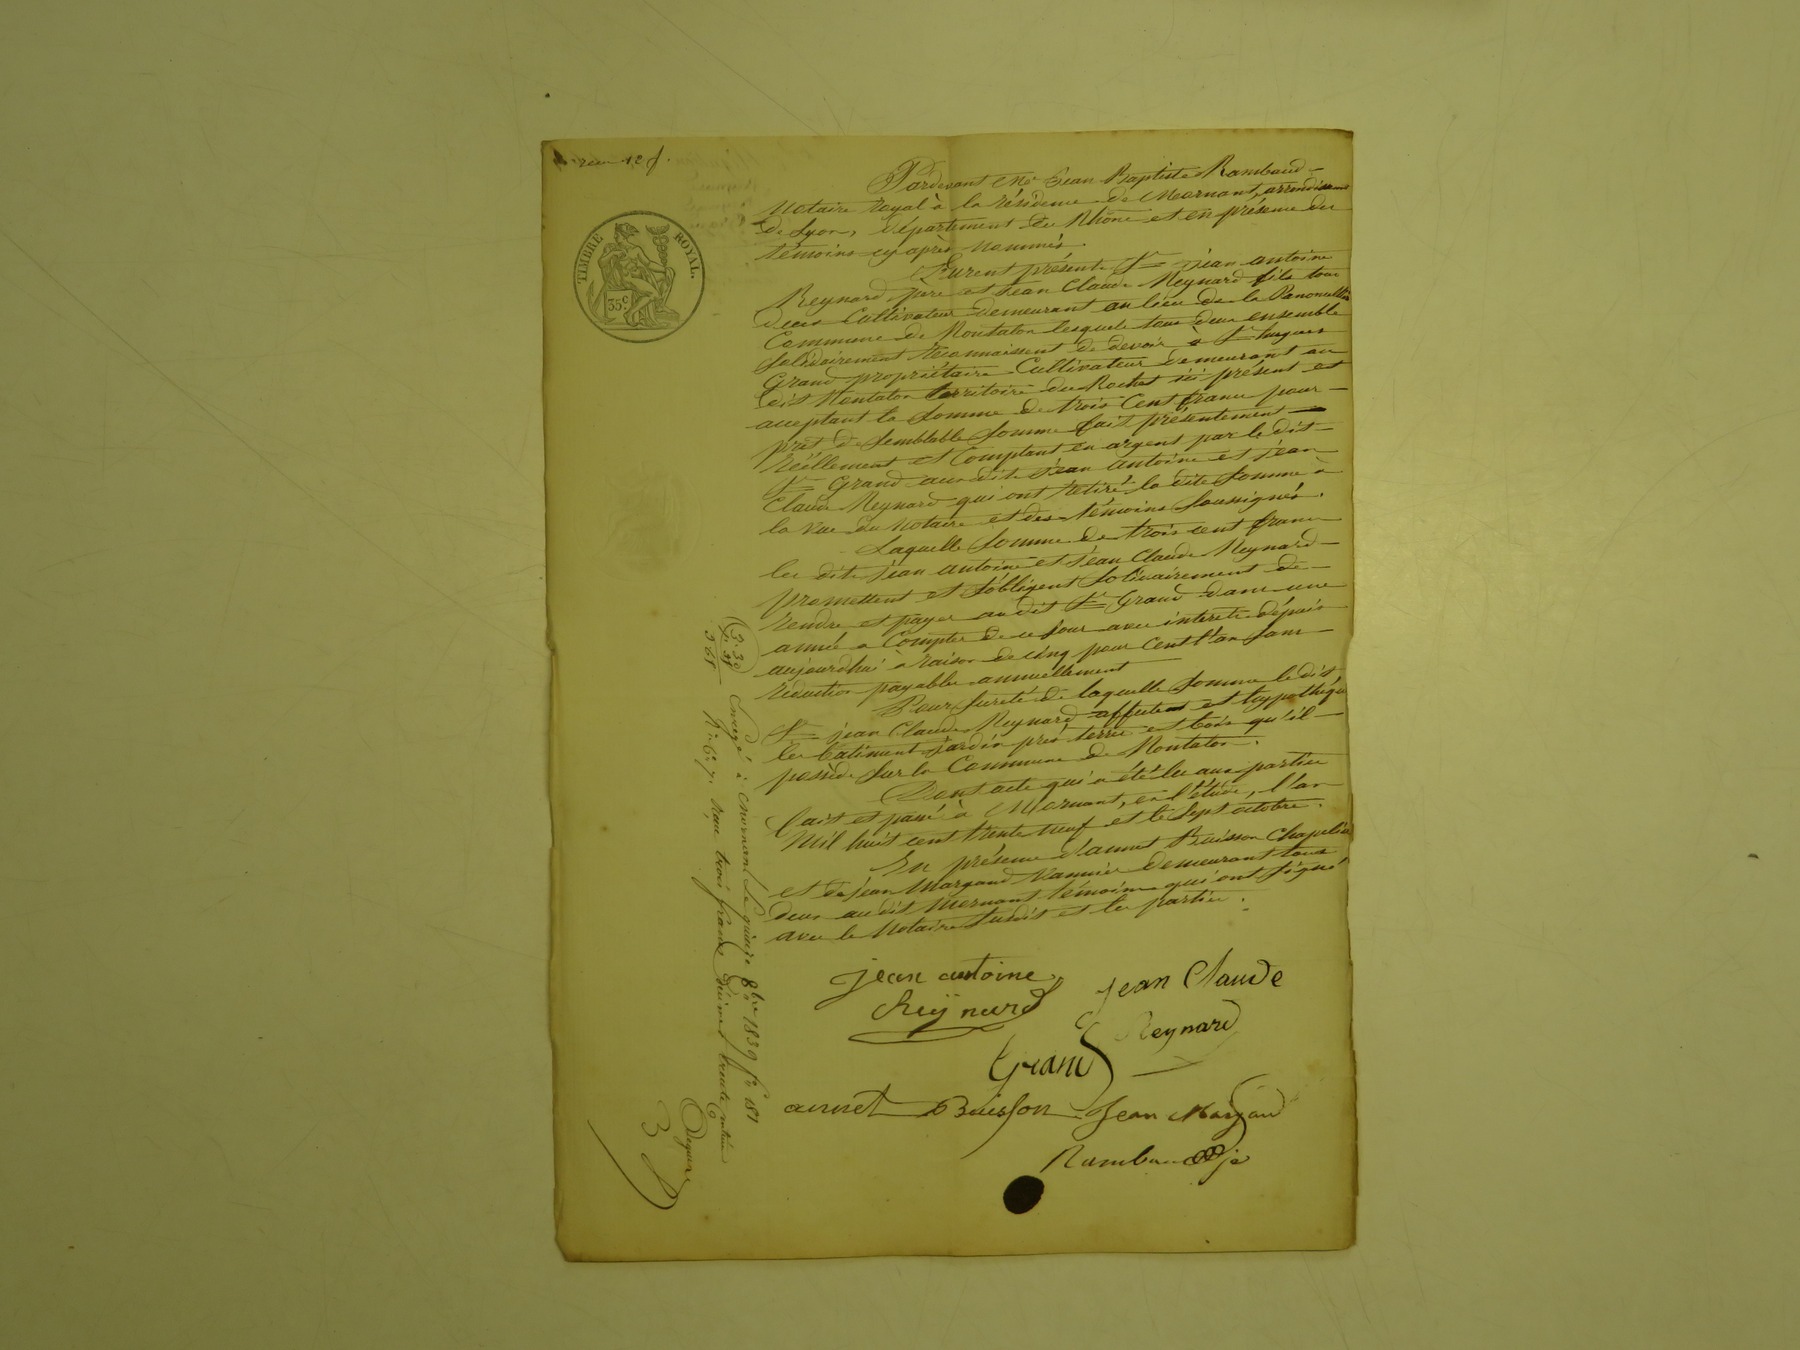 reçu 12 f.
TIMBRE ROYAL.
35c
Pardevant Me Jean Baptiste Rambaud
Notaire royal à la résidence de Mornant, arrondissement
de Lyon, département du Rhône et en présence des
témoins cy après nommés.
Furent présents Sr jean antoine
Reynard père et Jean Claude Reynard fils tous
deux Cultivateurs demeurant au lieu de la
Commune de Rontalon lesquels tous deux ensemble
solidairement reconnaissent de devoir à Sr hugues
Grand propriétaire Cultivateur demeurant au
dit Rontalon territoire du Rochet ici présent et
acceptant la somme de trois Cent francs pour
prêt de semblable somme fait présentement
réellement et Comptant en argent par le dit
Sr Grand aux dits Jean antoine et jean
Claude Reynard qui ont retiré la dite somme à
la vue du Notaire et des témoins soussignés.
Laquelle somme de trois cent francs
les dits jean antoine et Jean Claude Reynard
promettent et s'obligent solidairement de
rendre et payer au dit Sr Grand dans une
année a Compter de ce jour avec intérêts dépuis
aujourdhui a raison de cinq pour Cent l'an sans
réduction payables annuellement
Pour sureté de laquelle somme le dit
Sr jean Claude Reynard affecte et hypothéque
les batiment jardin près terres et bois qu'il
possède sur la Commune de Rontalon.
Dont acte qui a été lu aux parties
fait et passé à Mornant, en l'étude, l'an
Mil huit cent trente neuf et le sept octobre.
En présence d'annet Buisson Chapelier
et de jean Margaud Vannier demeurant tous
deux au dit Mornant témoins qui ont signé
avec le Notaire susdit et les parties.
jean antoine
Reÿnard
jean Claude
Reynard
Grand
annet Buisson
Jean Margaud
Rambaud
3. 30
33
3 63
Enregé à Mornant le quinze 8bre 1839 fo 181
Ro Co 7. Reçu trois francs décimes trente centimes